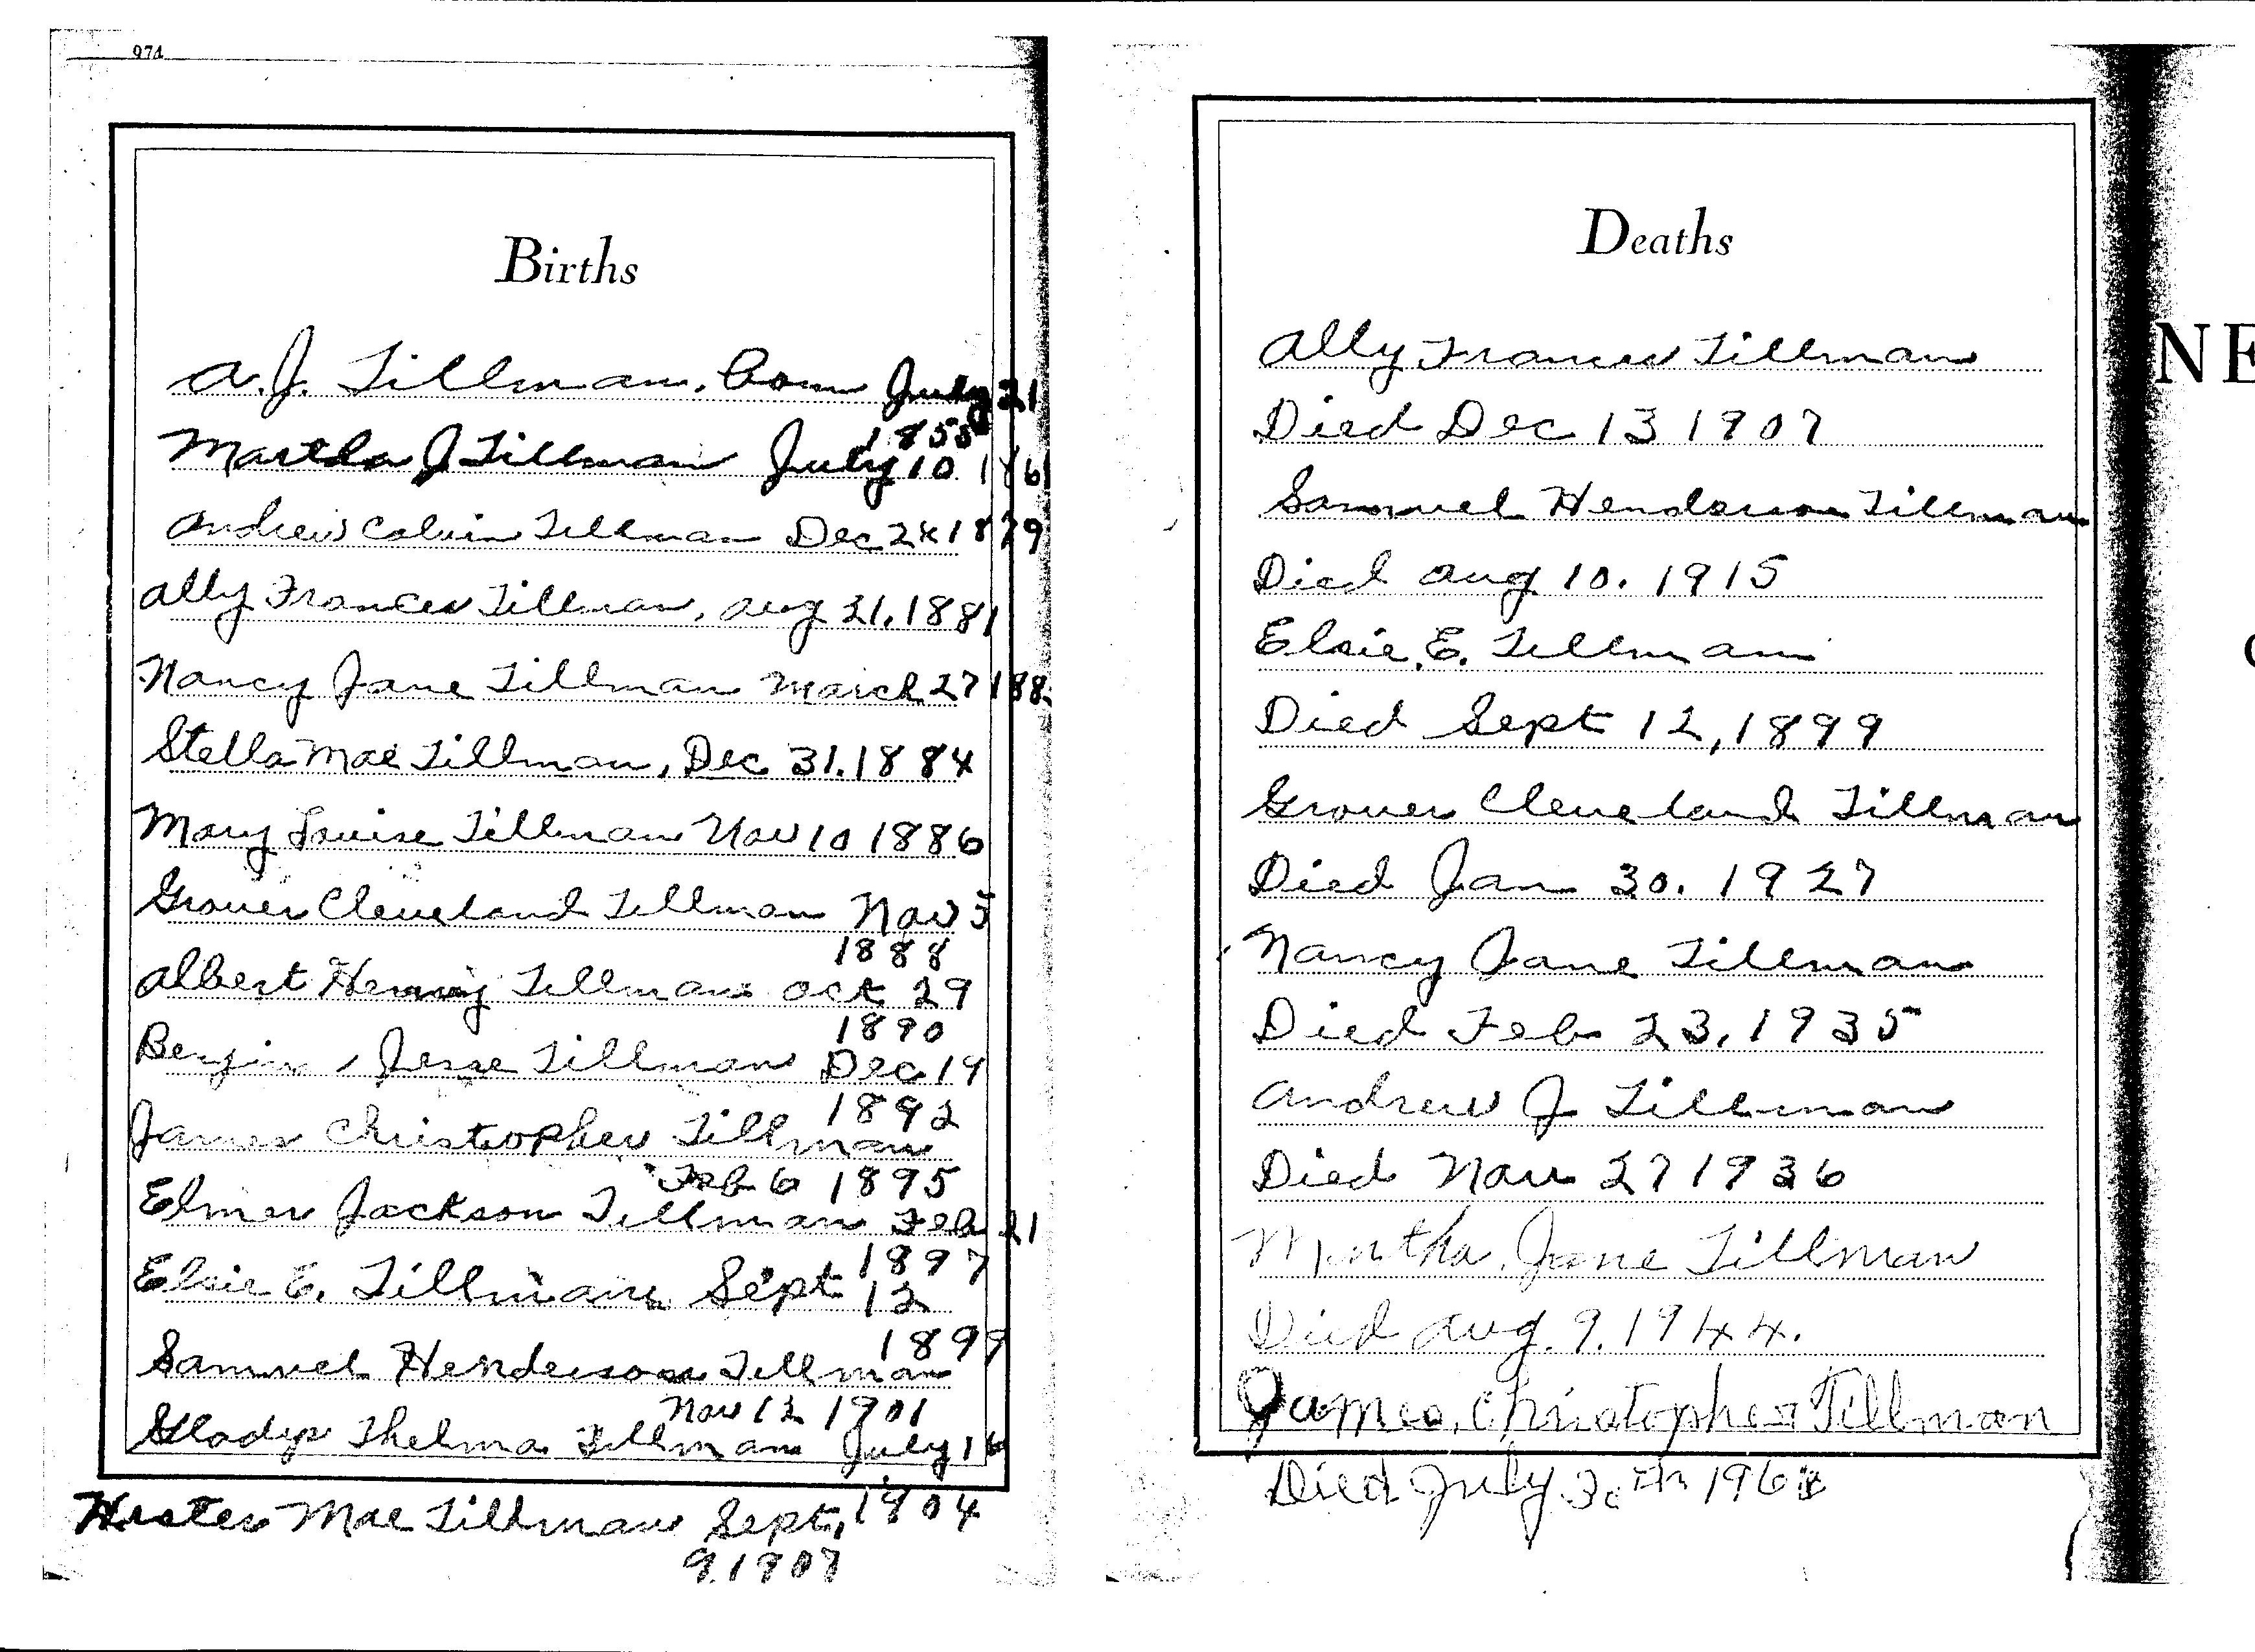 974
Births
A. J. Tillman. Born July 21
1855
Martha J Tillman July 10 1861
Andrew Calvin Tillman Dec 24 1879
Ally Frances Tillman, Aug 21. 1881
Nancy Jane Tillman March 27 188
Stella Mae Tillman, Dec 31. 1884
Mary Louise Tillman Nov 10 1886
Grover Cleveland Tillman Nov 5
1888
Albert Henry Tillman Oct 29
1890
Jesse Tillman Dec 19
1892
James Christopher Tillman
Feb 6 1895
Elmer Jackson Tillman Feb 21
1897
Elsie E. Tillman Sept 12
1899
Samuel Henderson Tillman
Nov 12 1901
Gladys Thelma Tillman July 16
1904
Hester Mae Tillman Sept,
9. 1907
Deaths
Ally Frances Tillman
Died Dec 13 1907
Samuel Henderson Tillman
Died Aug 10. 1915
Elsie. E. Tillman
Died Sept 12, 1899
Grover Cleveland Tillman
Died Jan 30. 1927
Nancy Jane Tillman
Died Feb 23, 1935
Andrew J Tillman
Died Nov 27 1936
Martha Jane Tillman
Died Aug. 9. 1944.
James, Christopher Tillman
Died July
NE